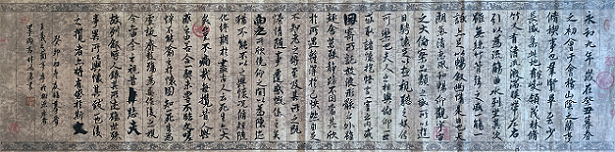 永和九年歲在癸丑暮春之
初會于會稽山陰之蘭亭
脩稧事也羣賢畢至少
長咸集此地有崇山峻領茂林脩
竹又有清流激湍暎帶左右
引以為流觴曲水列坐其次
雖無絲竹管弦之盛一觴一
詠亦足以暢敘幽情是日也天
朗氣清惠風和暢仰觀宇宙
之大俯察品類之盛所以遊
目騁懷足以極視聽之娛信
可樂也夫人之相與俯仰一世
或取諸懷抱悟言一室之內或
因寄所託放浪形骸之外雖
趣舍萬殊靜躁不同當其欣
於所遇暫得於己怏然自足
不知老之將至及其所之既惓
情隨事遷感慨係之矣
向之所欣俛仰之間以為陳迹
猶不能不以之興懷況脩短隨
化終期於盡古人云死生亦大
矣豈不痛哉每攬昔人興
感之由若合一契未嘗不臨文嗟
悼不能喻之於懷固知一死生為
虛誕齊彭殤為妄作後之視
今亦由今之視昔悲夫
故列敘時人錄其所述雖世殊
事異所以興懷其致一也後
之攬者亦將有感於斯文